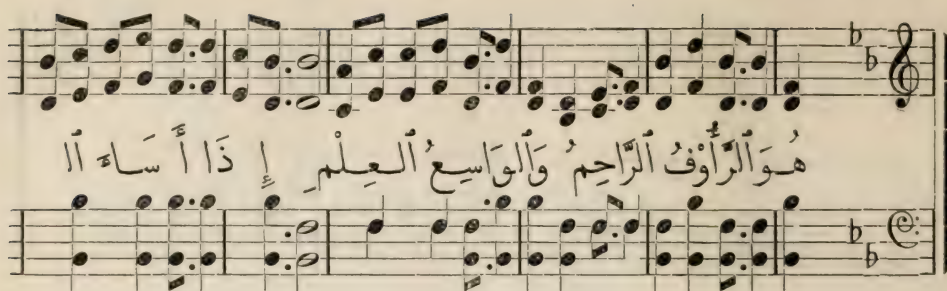 هُوَ ٱلرَّأُوْفُ ٱلرَّاحِمُ وَٱلوَاسِعُ ٱلـعِلْمِ إِذَا أَسَاءَ ٱلا